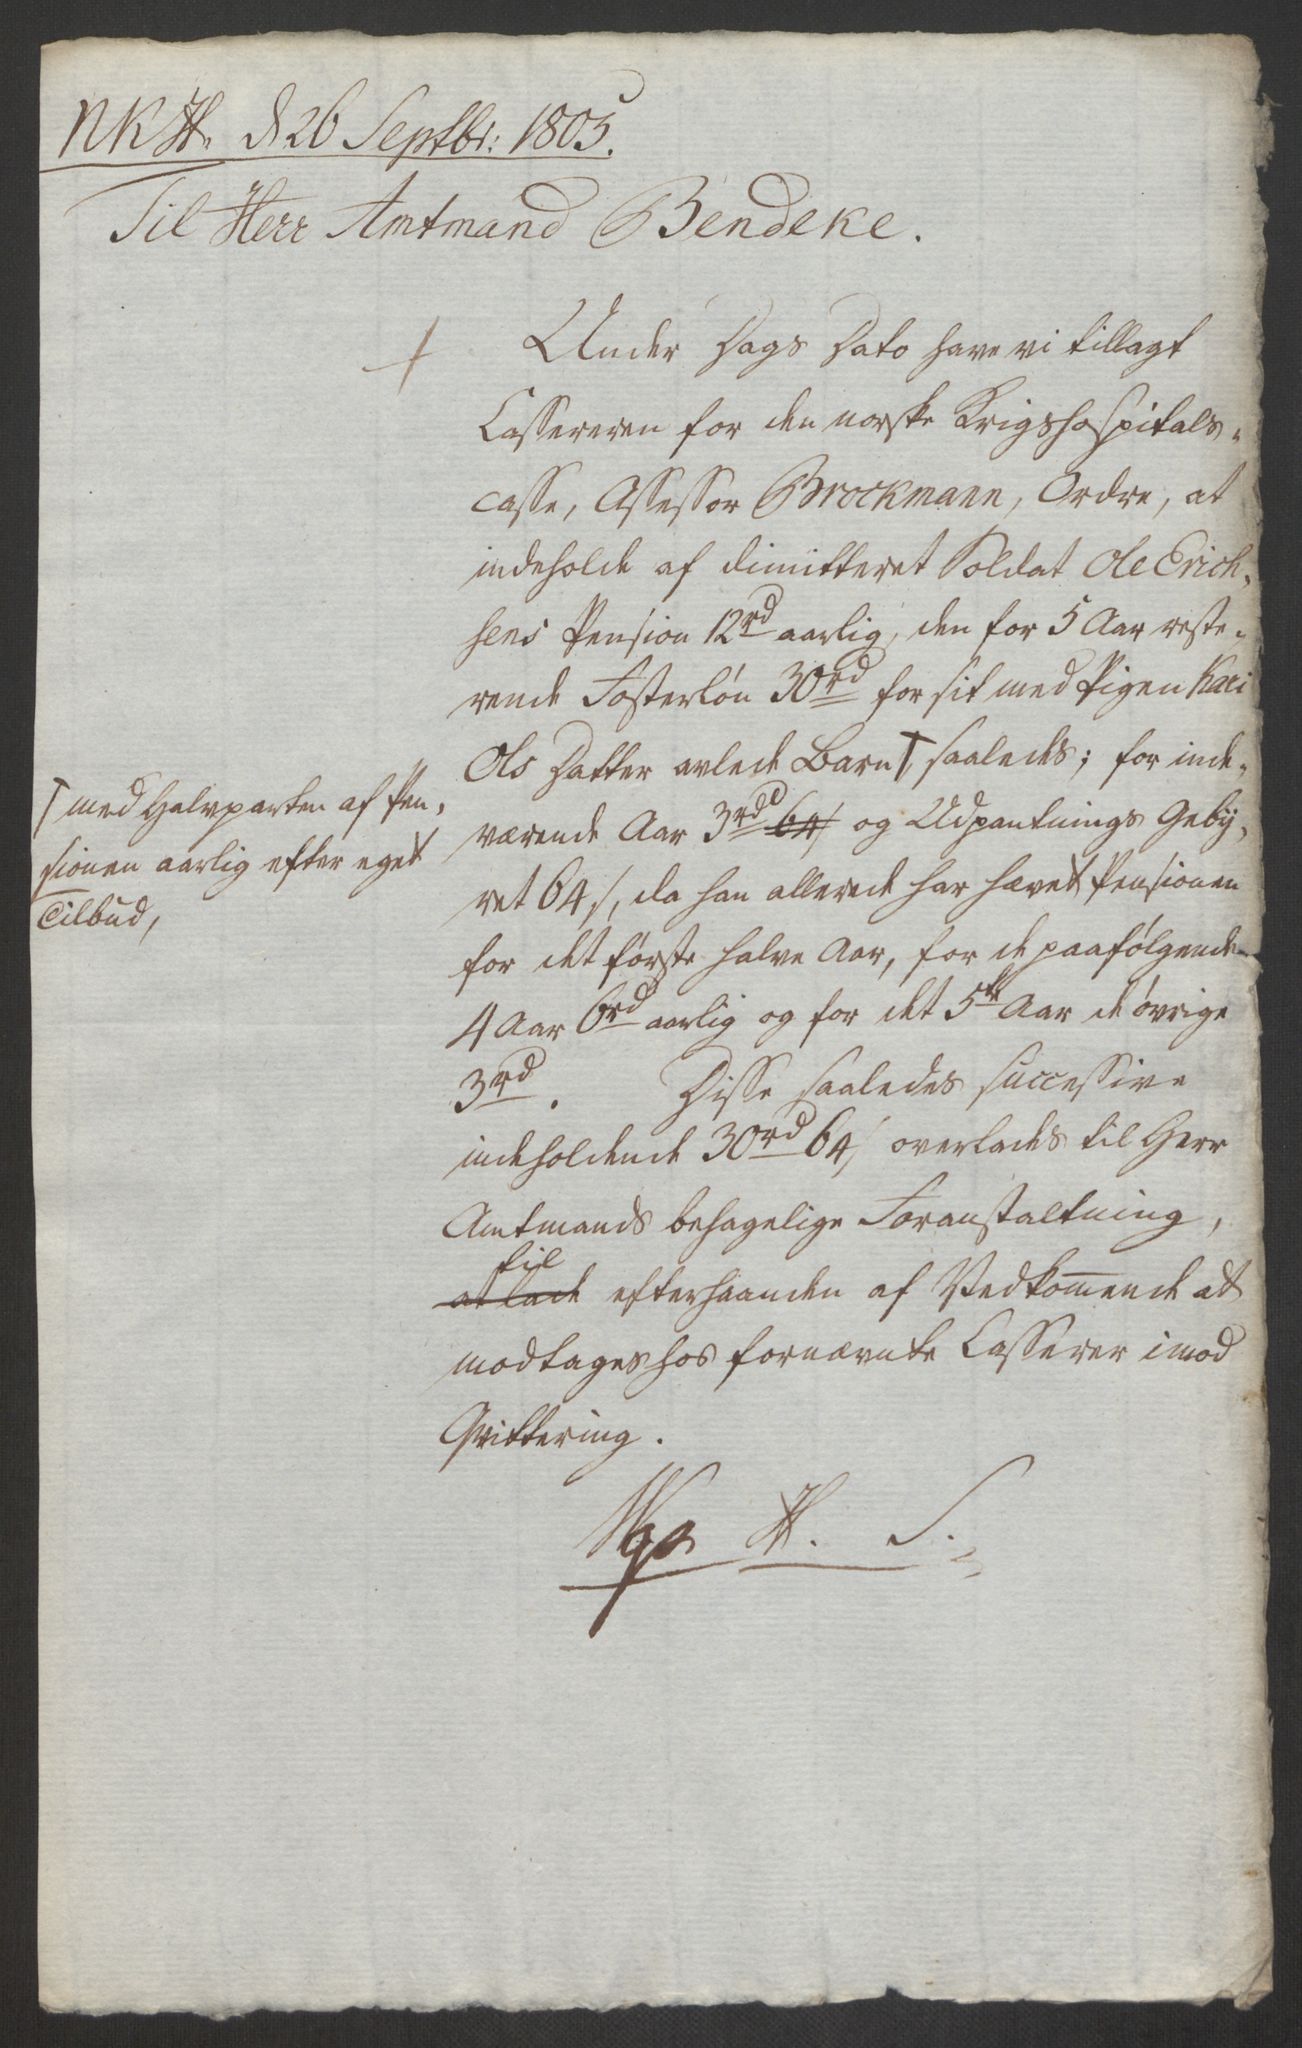 NKH. d 26 Septbr: 1805.
Til Herr Amtmand Bendeke.
Under Dags Dato have vi tillagt
Cassereren for den norske Krigshospitals-
casse, Assessor Brockmann, Ordre, at
indeholde af dimitteret Soldat Ole Erich-
hens Pension 12 rd aarlig, den for 5 Aar reste-
rende Fosterløn 30 rd for sit med Pigen Kari
Ols Datter avlede Barn † saaledes; for inde-
værende Aar 3 rd 64 / og Udpantnings Geby-
ret 64 /, da han allerede har hævet Pensionen
for det første halve Aar, for de paafølgende
4 Aar 6 rd aarlig og for det 5te Aar de øvrige
3 rd. Disse saaledes successive
indeholdende 30 rd 64 / overlades til Herr
Amtmands behagelige Foranstaltning,
til
at lade efterhaanden af Vedkommende at
modtages hos fornævnte Casserer imod
Qvittering.
H. S.
† med Halvparten af Pen-
sionen aarlig efter eget
Tilbud,